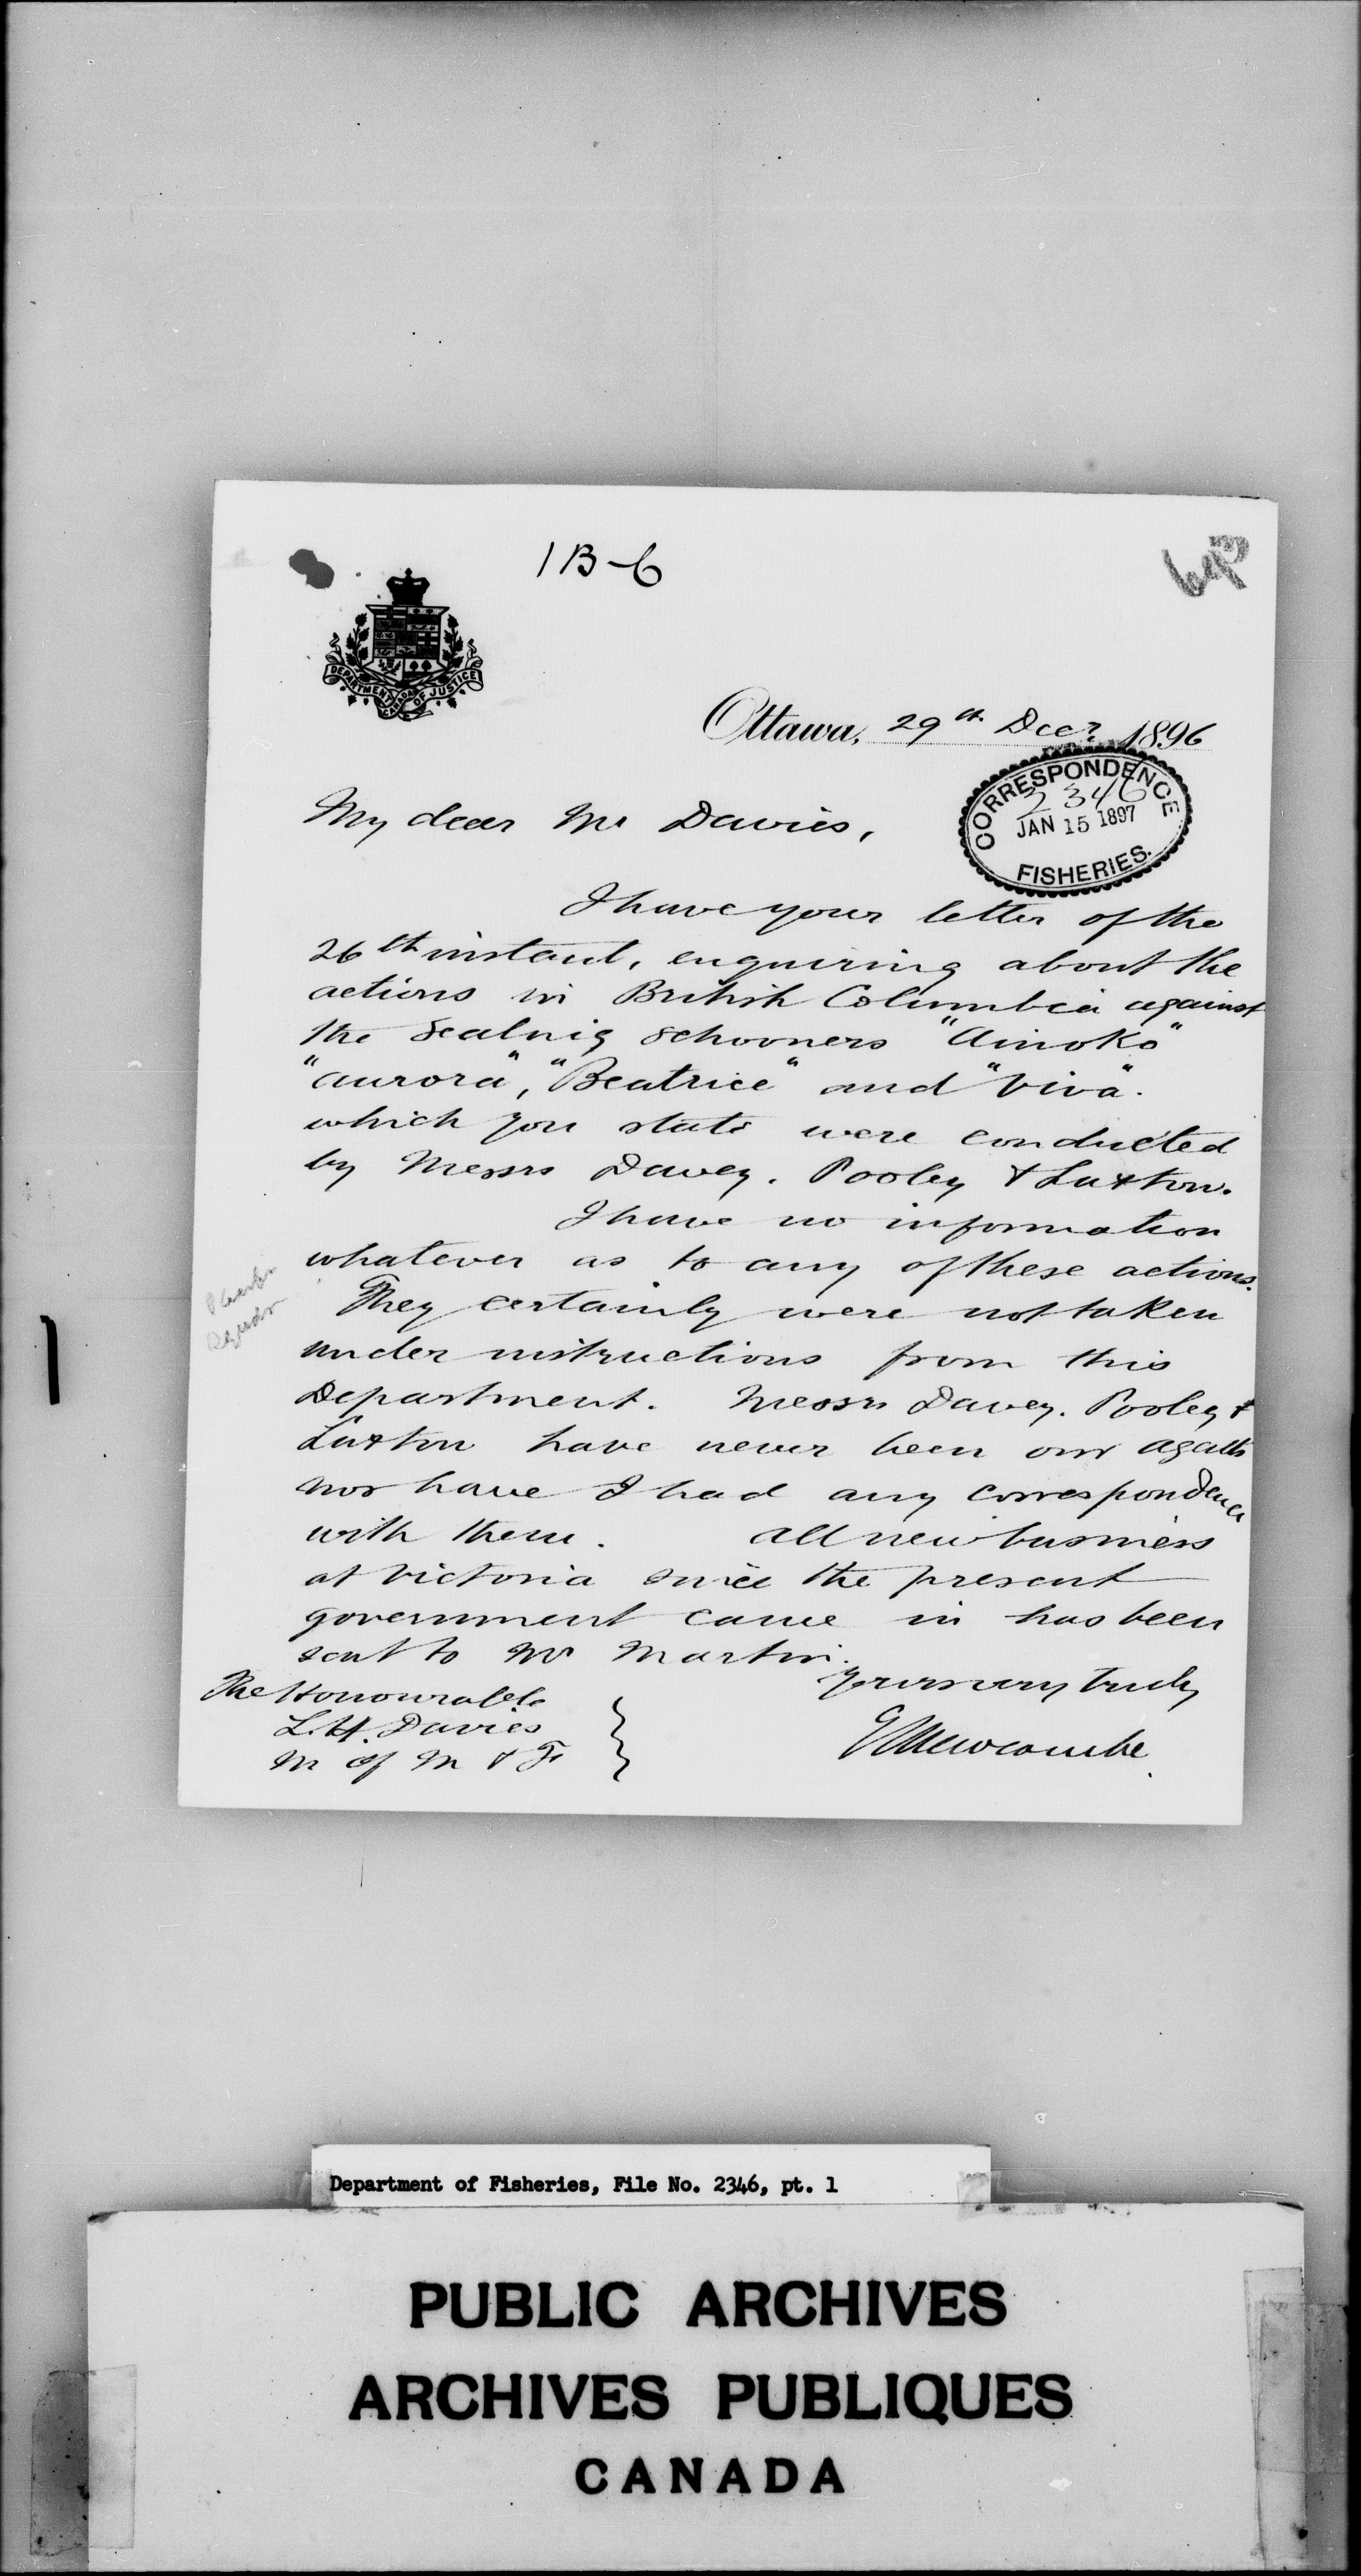 1B-6
DEPARTMENT OF JUSTICE
CANADA
Ottawa, 29th Decr. 1896
CORRESPONDENCE
2346
JAN 15 1897
FISHERIES.
My dear Mr Davies,
I have your letter of the
26th instant, enquiring about the
actions in British Columbia against
the sealing schooners "Ainoko"
"Aurora", "Beatrice" and "Viva".
which you state were conducted
by Messrs Davey, Pooley & Luxton.
I have no information
whatever as to any of these actions.
They certainly were not taken
under instructions from this
Department. Messrs Davey. Pooley &
Luxton have never been our agents
nor have I had any correspondence
with them. All new business
at Victoria since the present
government came in has been
sent to Mr Martin.
Yours very truly
The Honourable
L. H. Davies
M of M & F
E L Newcombe.
Department of Fisheries, File No. 2346, pt. 1
PUBLIC ARCHIVES
ARCHIVES PUBLIQUES
CANADA